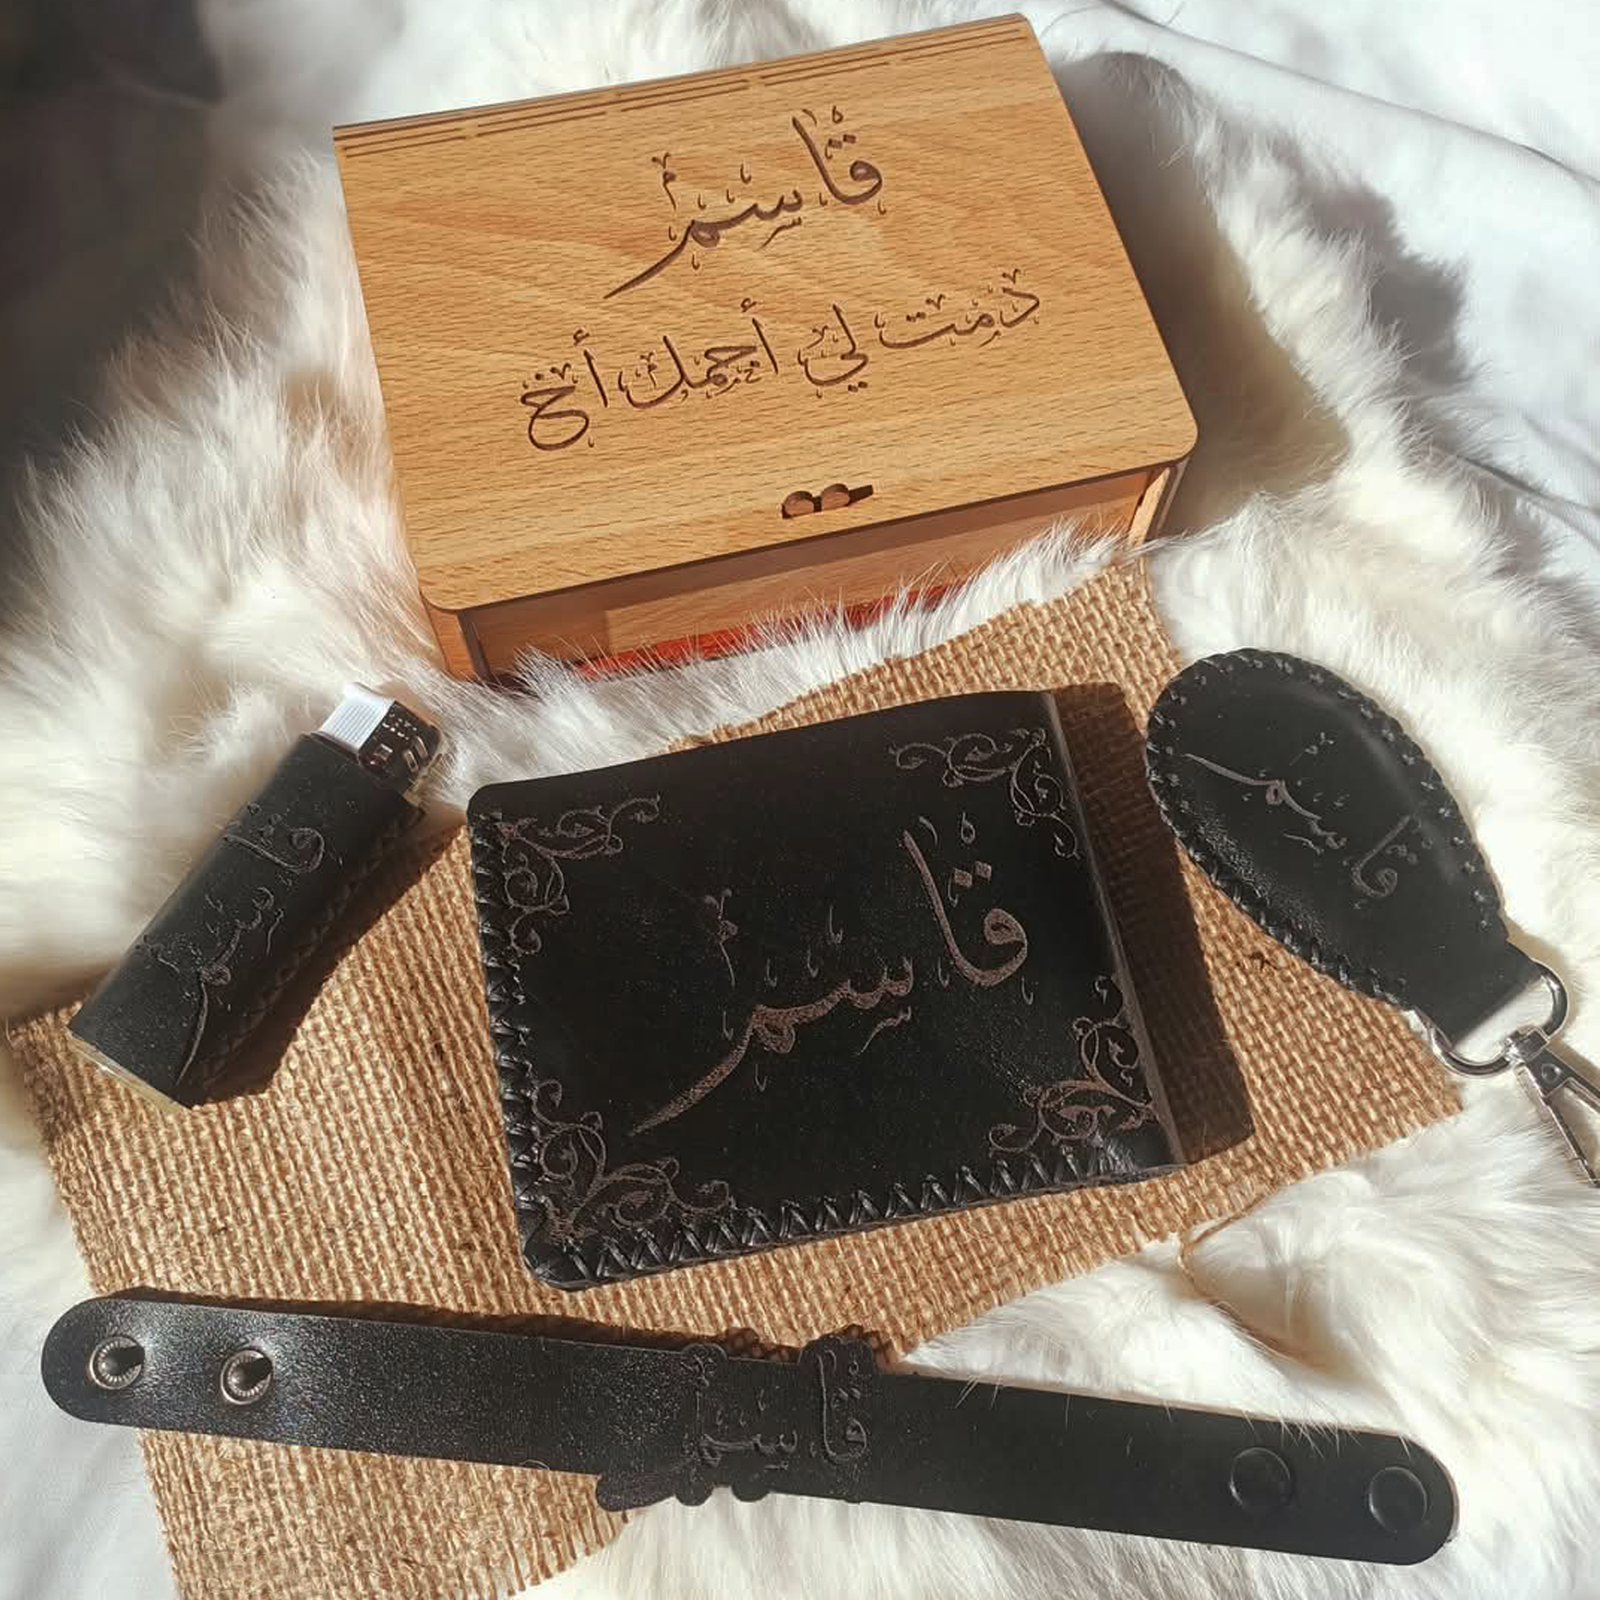 قاسم
دمت لي أجمل أخ
قاسم
قاسم
قاسم
قاسم